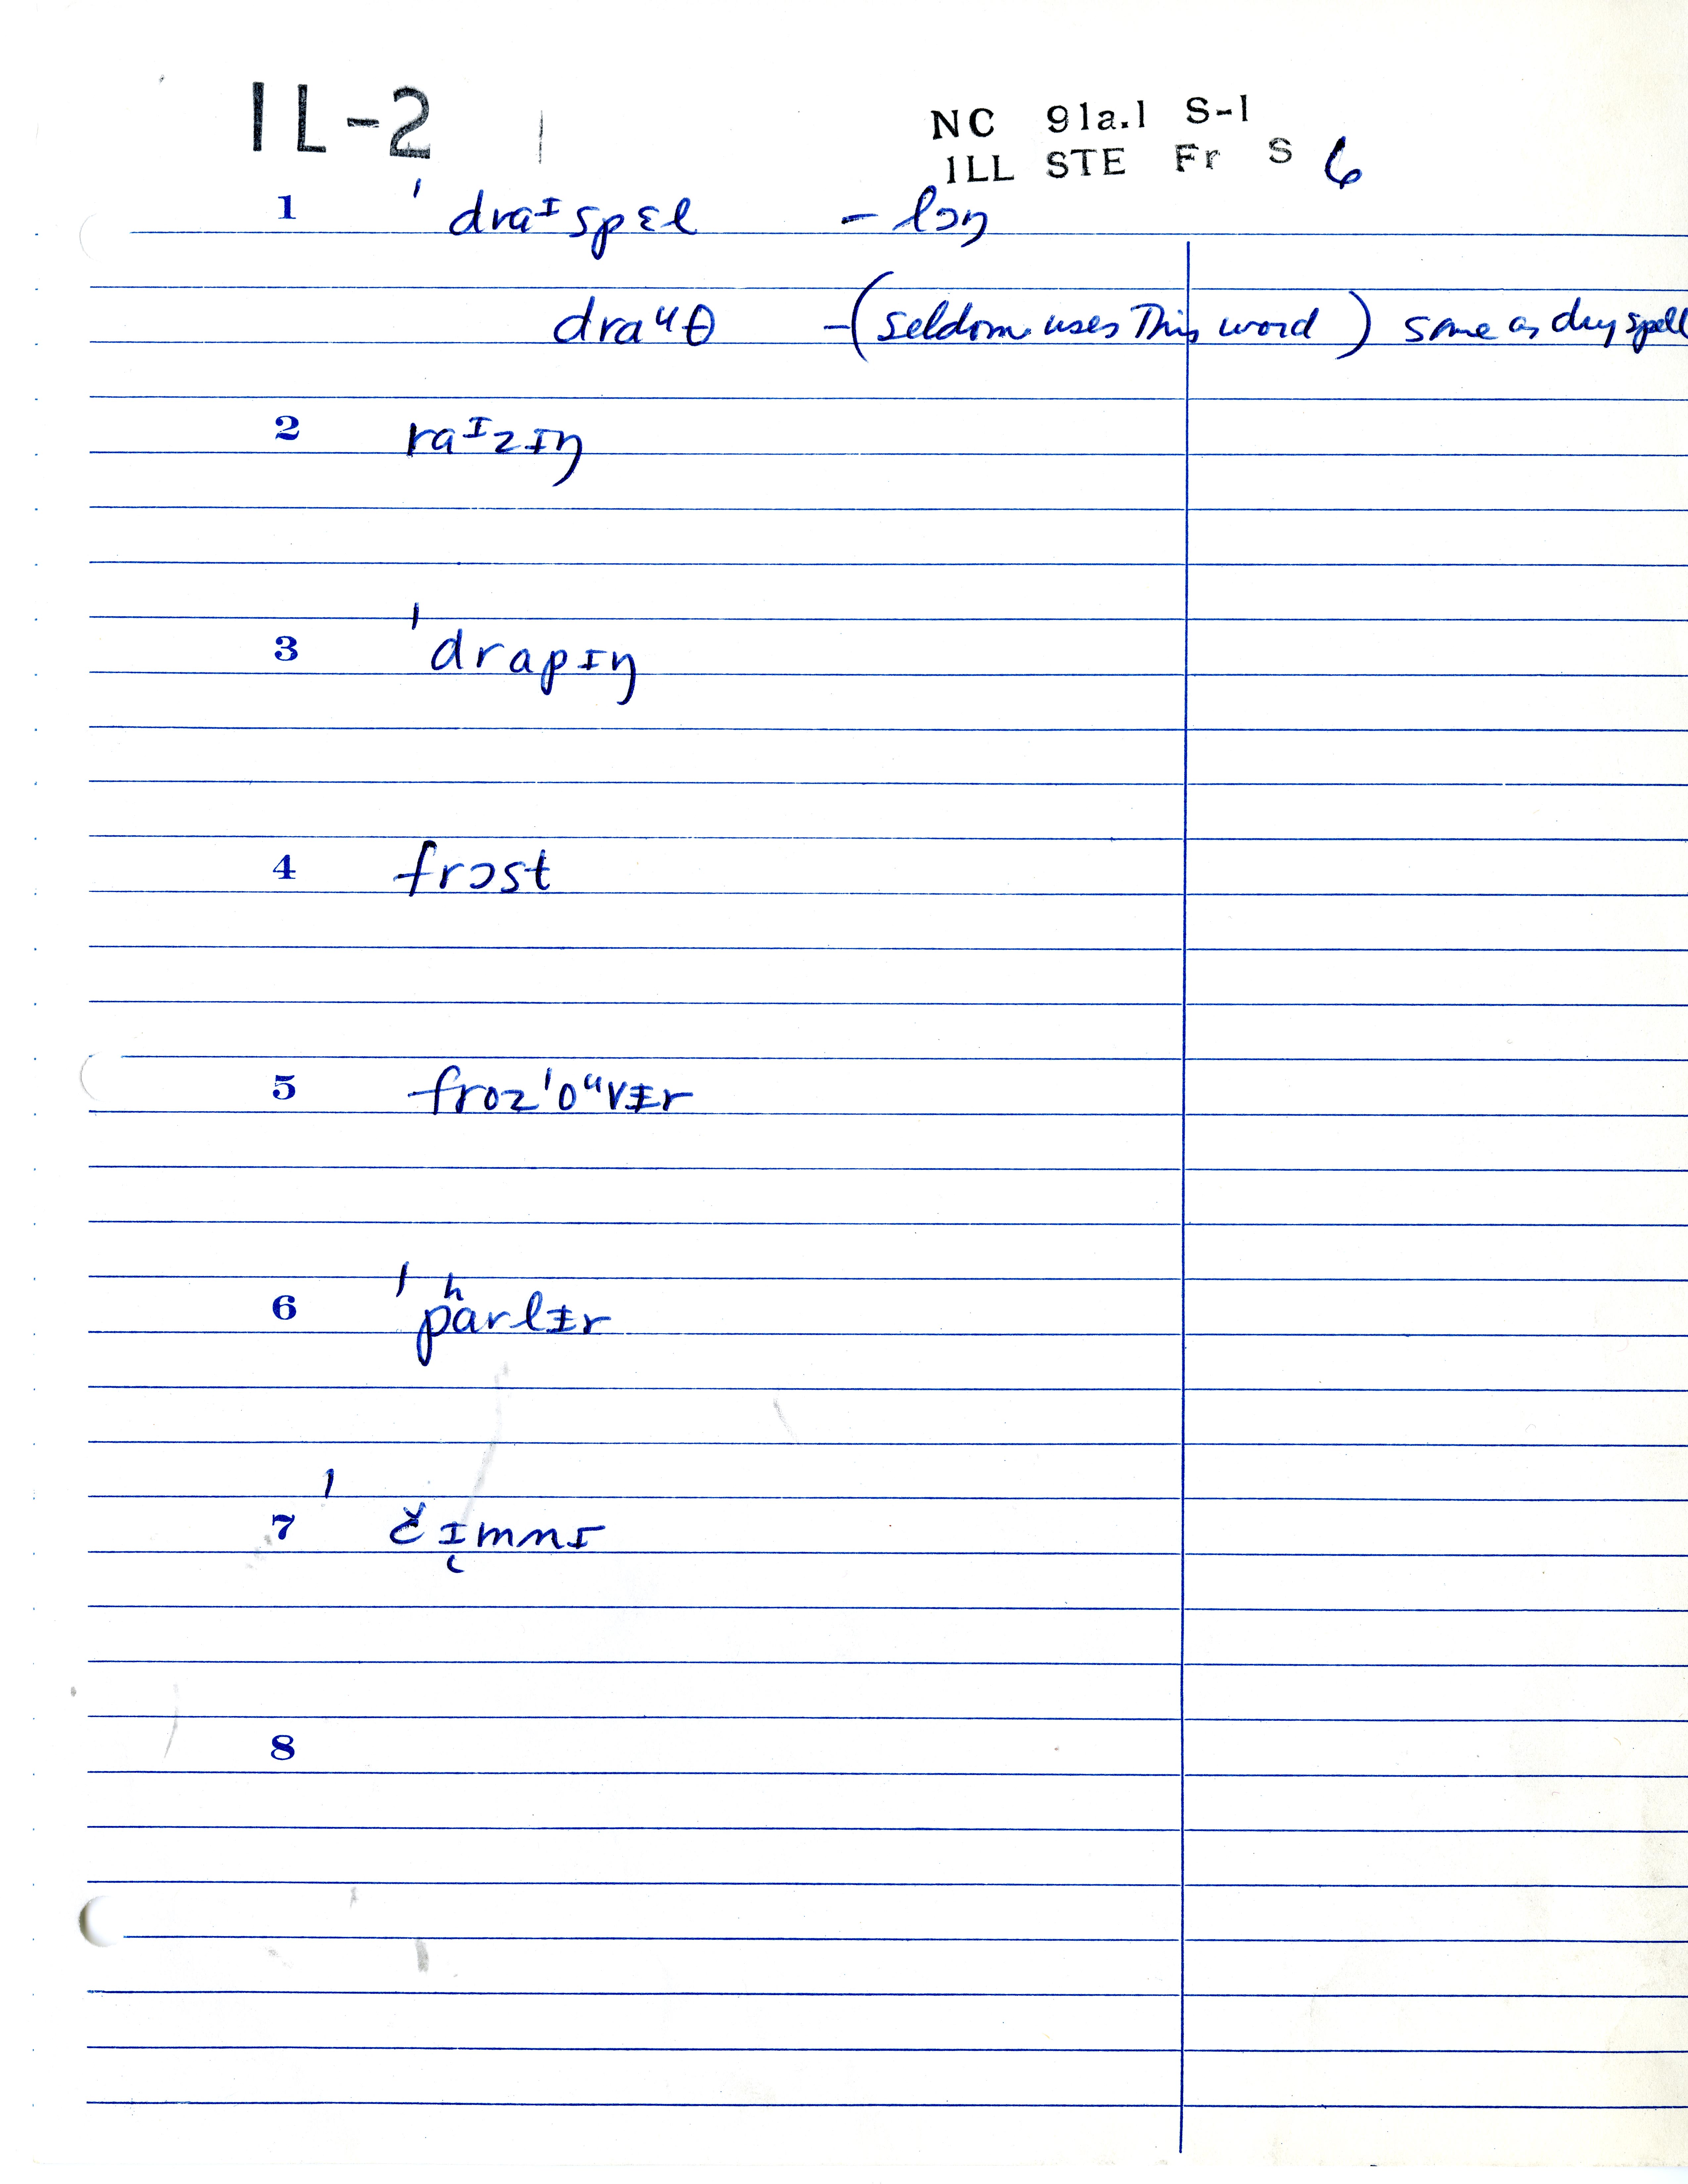 IL-2
NC 91a.1 S-1
ILL STE Fr S 6
1 ˈdraᶦspɛl – lɔŋ
draᵘθ – (seldom uses This word) same as dry spell
2 raᶦzɪŋ
3 ˈdrapɪŋ
4 frɔst
5 frozˈoᵘvɨr
6 ˈpʰarlɨr
7 ˈčɪ̨mnɪ
8